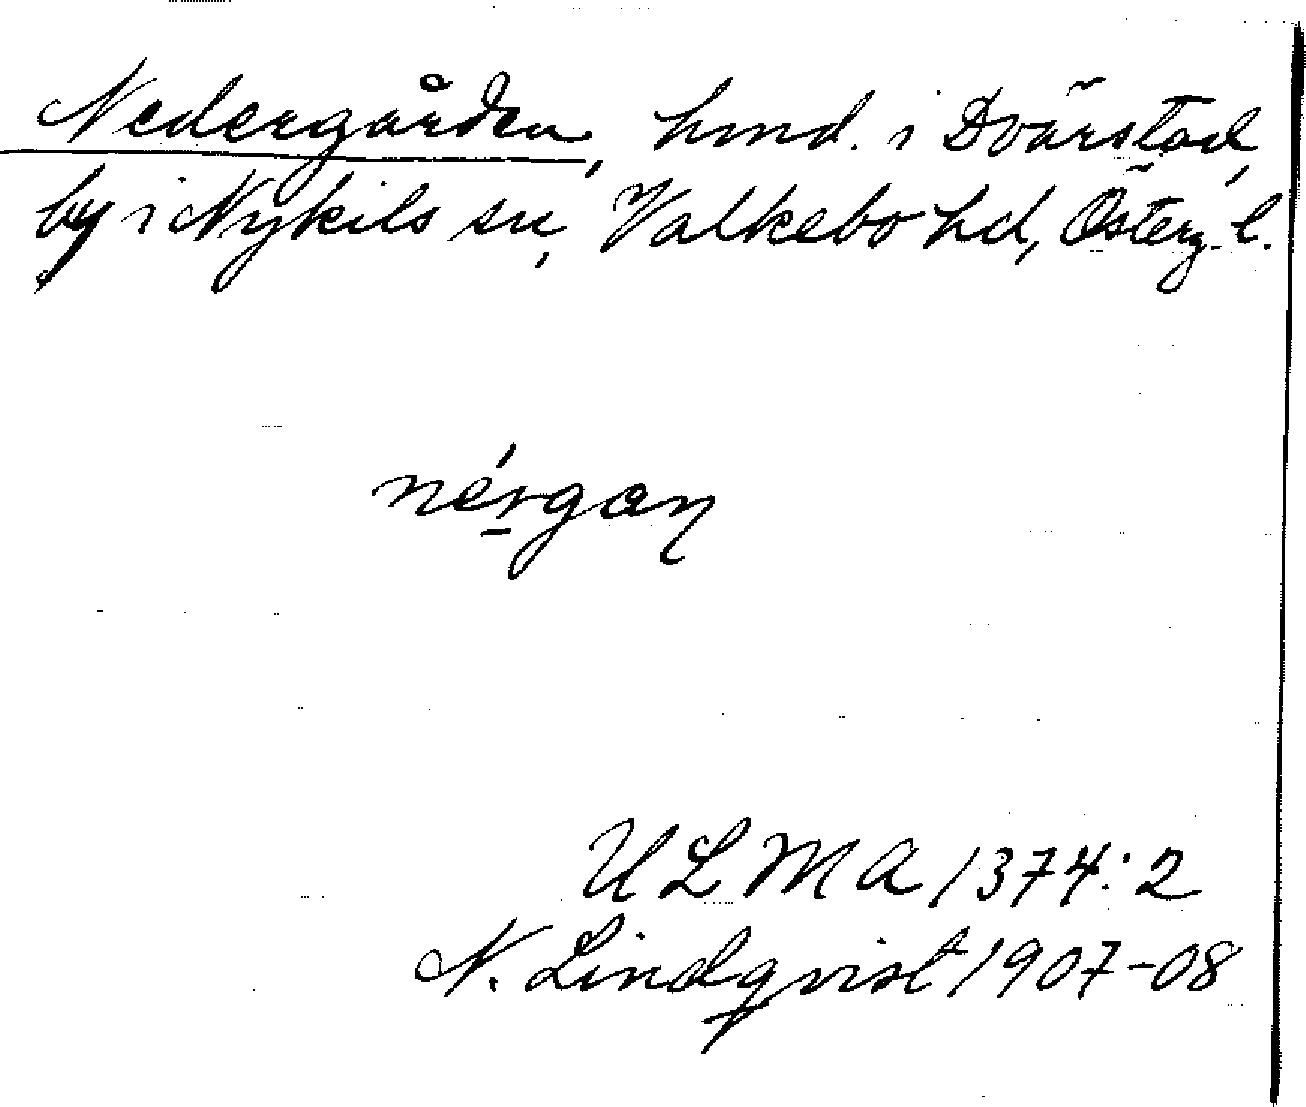 Nedergården, hmd. i Dvärstad,
by i Nykils sn, Valkebo hd, Österg. l.
nérgaŋ
ULMA 1374:2
N. Lindqvist 1907-08